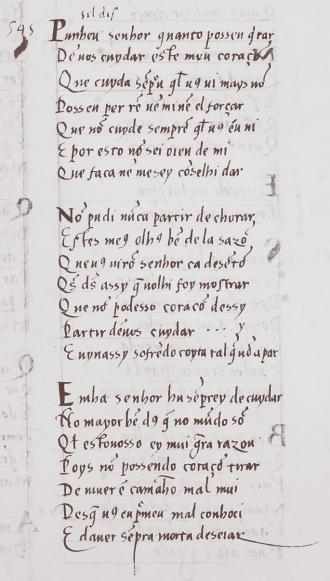 sil dis
545
Punhey senhor quanto possen q̃tar
De uos cuydar este meu coraçõ
Que cuyda sẽp̃ q̃l u9 ui mays nõ
Posseu per rẽ nẽ mĩ nẽ el forçar
Que nõ cuyde sempre q̃l u9 eu ui
E por esto nõ sei oieu de mi
Que faca nẽ mesey cõselhi dar

Nõ pudi nũca partir de chorar
Estes me9 olh9 bẽ de la sazõ
Que u9 uirõ senhor ca desentõ
Q̃s d's assy q̃ uolhi foy mostrar
Que nõ podesso coraçõ dessy
Partir deuos cuydar .... y
E uynassy sofrẽdo coyta tal q̃ nõ a par

E mha senhor hu sẽprey de cuydar
No mayor bẽ d9 q̃ no mũdo sõ
Q̃l est o uosso ey mui g̃ra razon
Poys nõ possendo coraçõ tirar
De uiuer ẽ camãho mal uiui
Des q̃ u9 eu p̃ meu mal conhoci
E dauer sẽpra morta deseiar